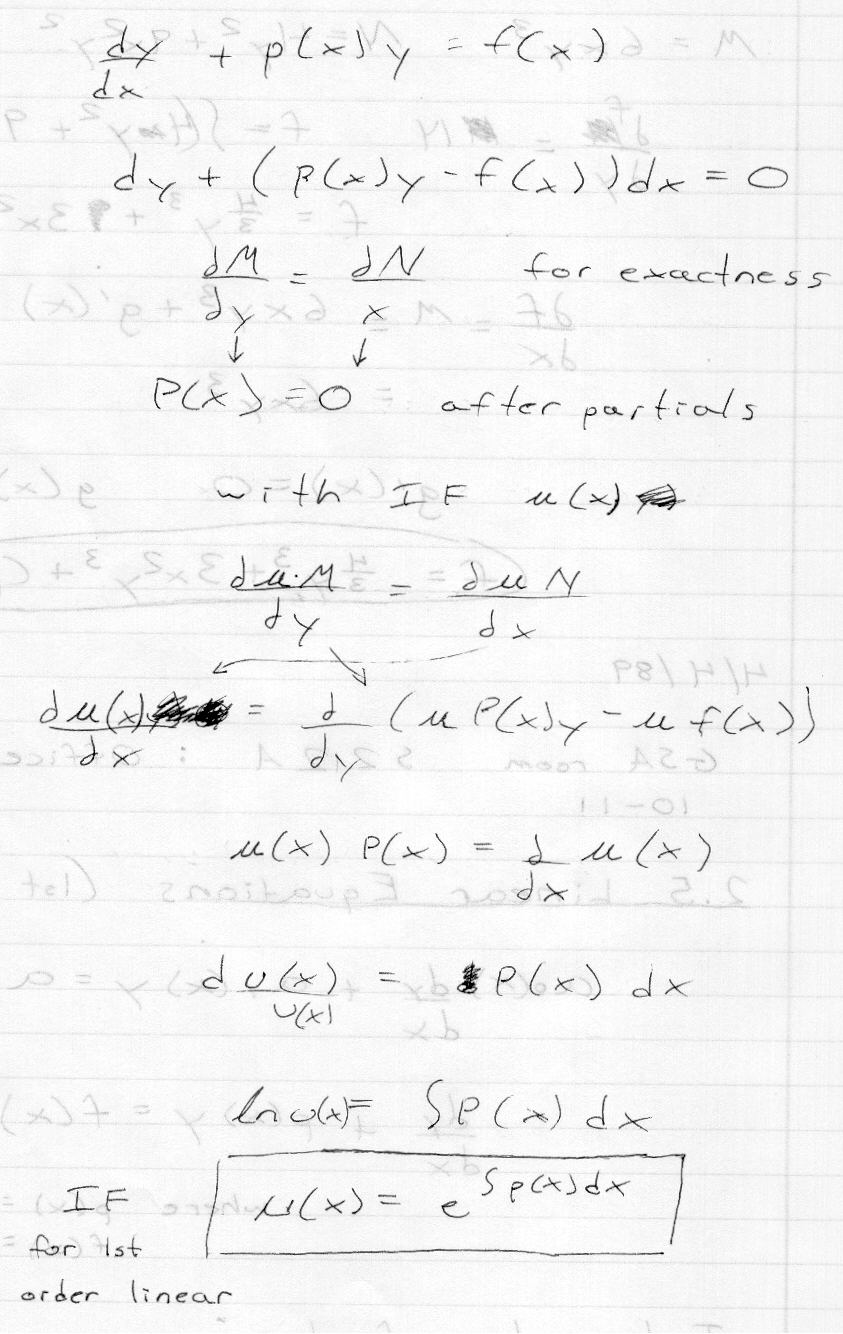 dy/dx + p(x)y = f(x)
dy + (P(x)y - f(x))dx = 0
dM/dy = dN/x for exactness
↓ ↓
P(x) = 0 after partials
with IF u(x)
du·M/dy = duN/dx
du(x)/dx = d/dy (u P(x)y - u f(x))
u(x) P(x) = d/dx u(x)
d u(x)/u(x) = P(x) dx
ln u(x) = ∫P(x) dx
IF u(x) = e^∫p(x)dx
for 1st
order linear